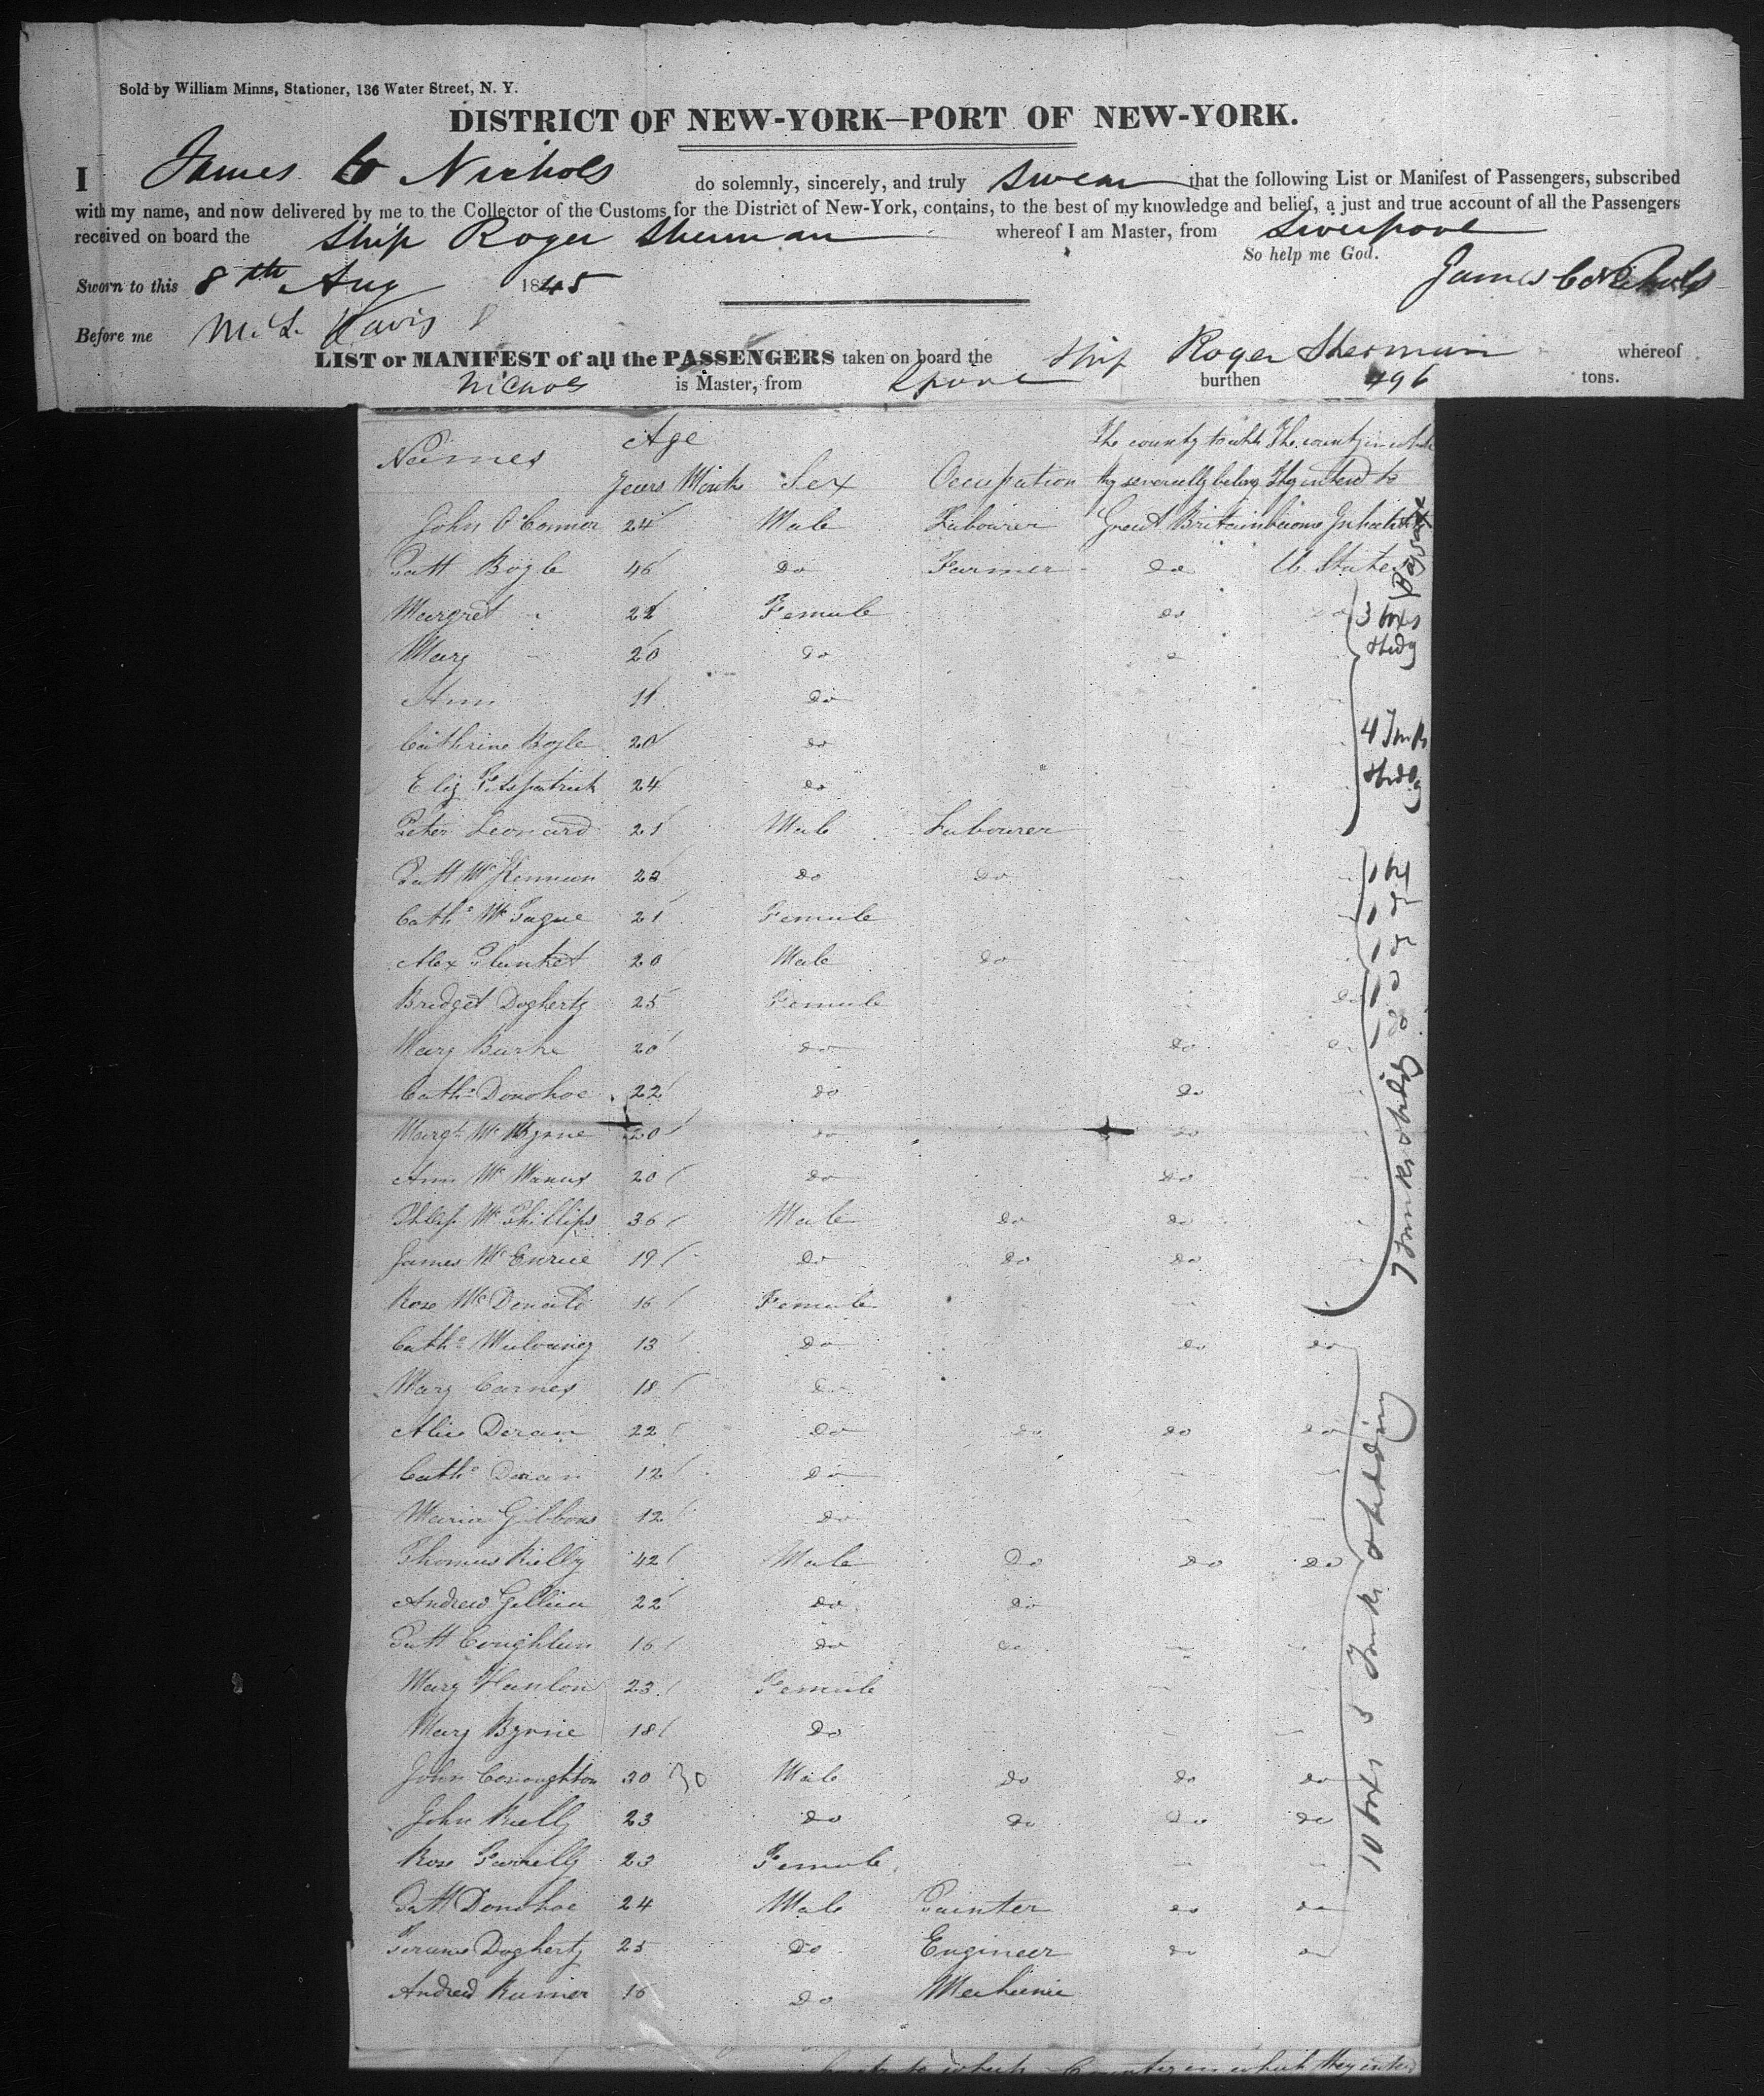 Sold by William Minns, Stationer, 136 Water Street, N. Y.
DISTRICT OF NEW-YORK—PORT OF NEW-YORK.
I James C Nichols do solemnly, sincerely, and truly swear that the following List or Manifest of Passengers, subscribed
with my name, and now delivered by me to the Collector of the Customs for the District of New-York, contains, to the best of my knowledge and belief, a just and true account of all the Passengers
received on board the Ship Roger Sherman whereof I am Master, from Liverpool
So help me God.
Sworn to this 8th Aug 1845 James C Nichols
Before me M. L. Davis
LIST or MANIFEST of all the PASSENGERS taken on board the Ship Roger Sherman whereof
Nichols is Master, from Lpool burthen 496 tons.
Names Age The county to which The county in which
Years Month Sex Occupation they severally belong They intend to
John O'Connor 24 Male Labourer Great Britain become Inhabitants
Patt Boyle 46 Do Farmer do U. States
Margret 22 Female do do
Mary 20 do
Ann 11 do
Cathrine Boyle 20 do
Eliz Fitspatrick 24 do
Peter Leonard 21 Male Labourer
Patt McKennan 22 do do
Cathe McTague 21 Female
Alex Plunket 20 Male do
Bridget Dogherty 25 Female do
Mary Burke 20 do do do
Cathe Donohoe 22 do do
Margt McByrne 20 do do
Ann McManus 20 do do
Philip McPhillips 36 Male do do
James McEnrice 19 do do do
Rose McDonald 16 Female
Cathe Mulvaney 13 do do do
Mary Carnes 18 do
Alice Deran 22 do do do do
Cathe Deran 12 do
Maria Gibbons 12 do
Thomas Rielly 42 Male do do do
Andrew 22 do do
Patt Coughlan 16 do do
Mary Hanlon 23 Female
Mary Byrne 18 do
John Conoughton 30 30 Male do do do
John Rielly 23 do do do do
Rose Farrelly 23 Female
Patt Donohoe 24 Male Painter do do
Dogherty 25 do Engineer do do
Andrew 16 do Mechanic
Baggage
3 boxs
& bedg
4 Trunks
& bedg
1 box
1 do
1 do
1 do
1 do
7 Trunks & bedg
10 boxs 5 Trunks & bedding
to which Country in which they intend